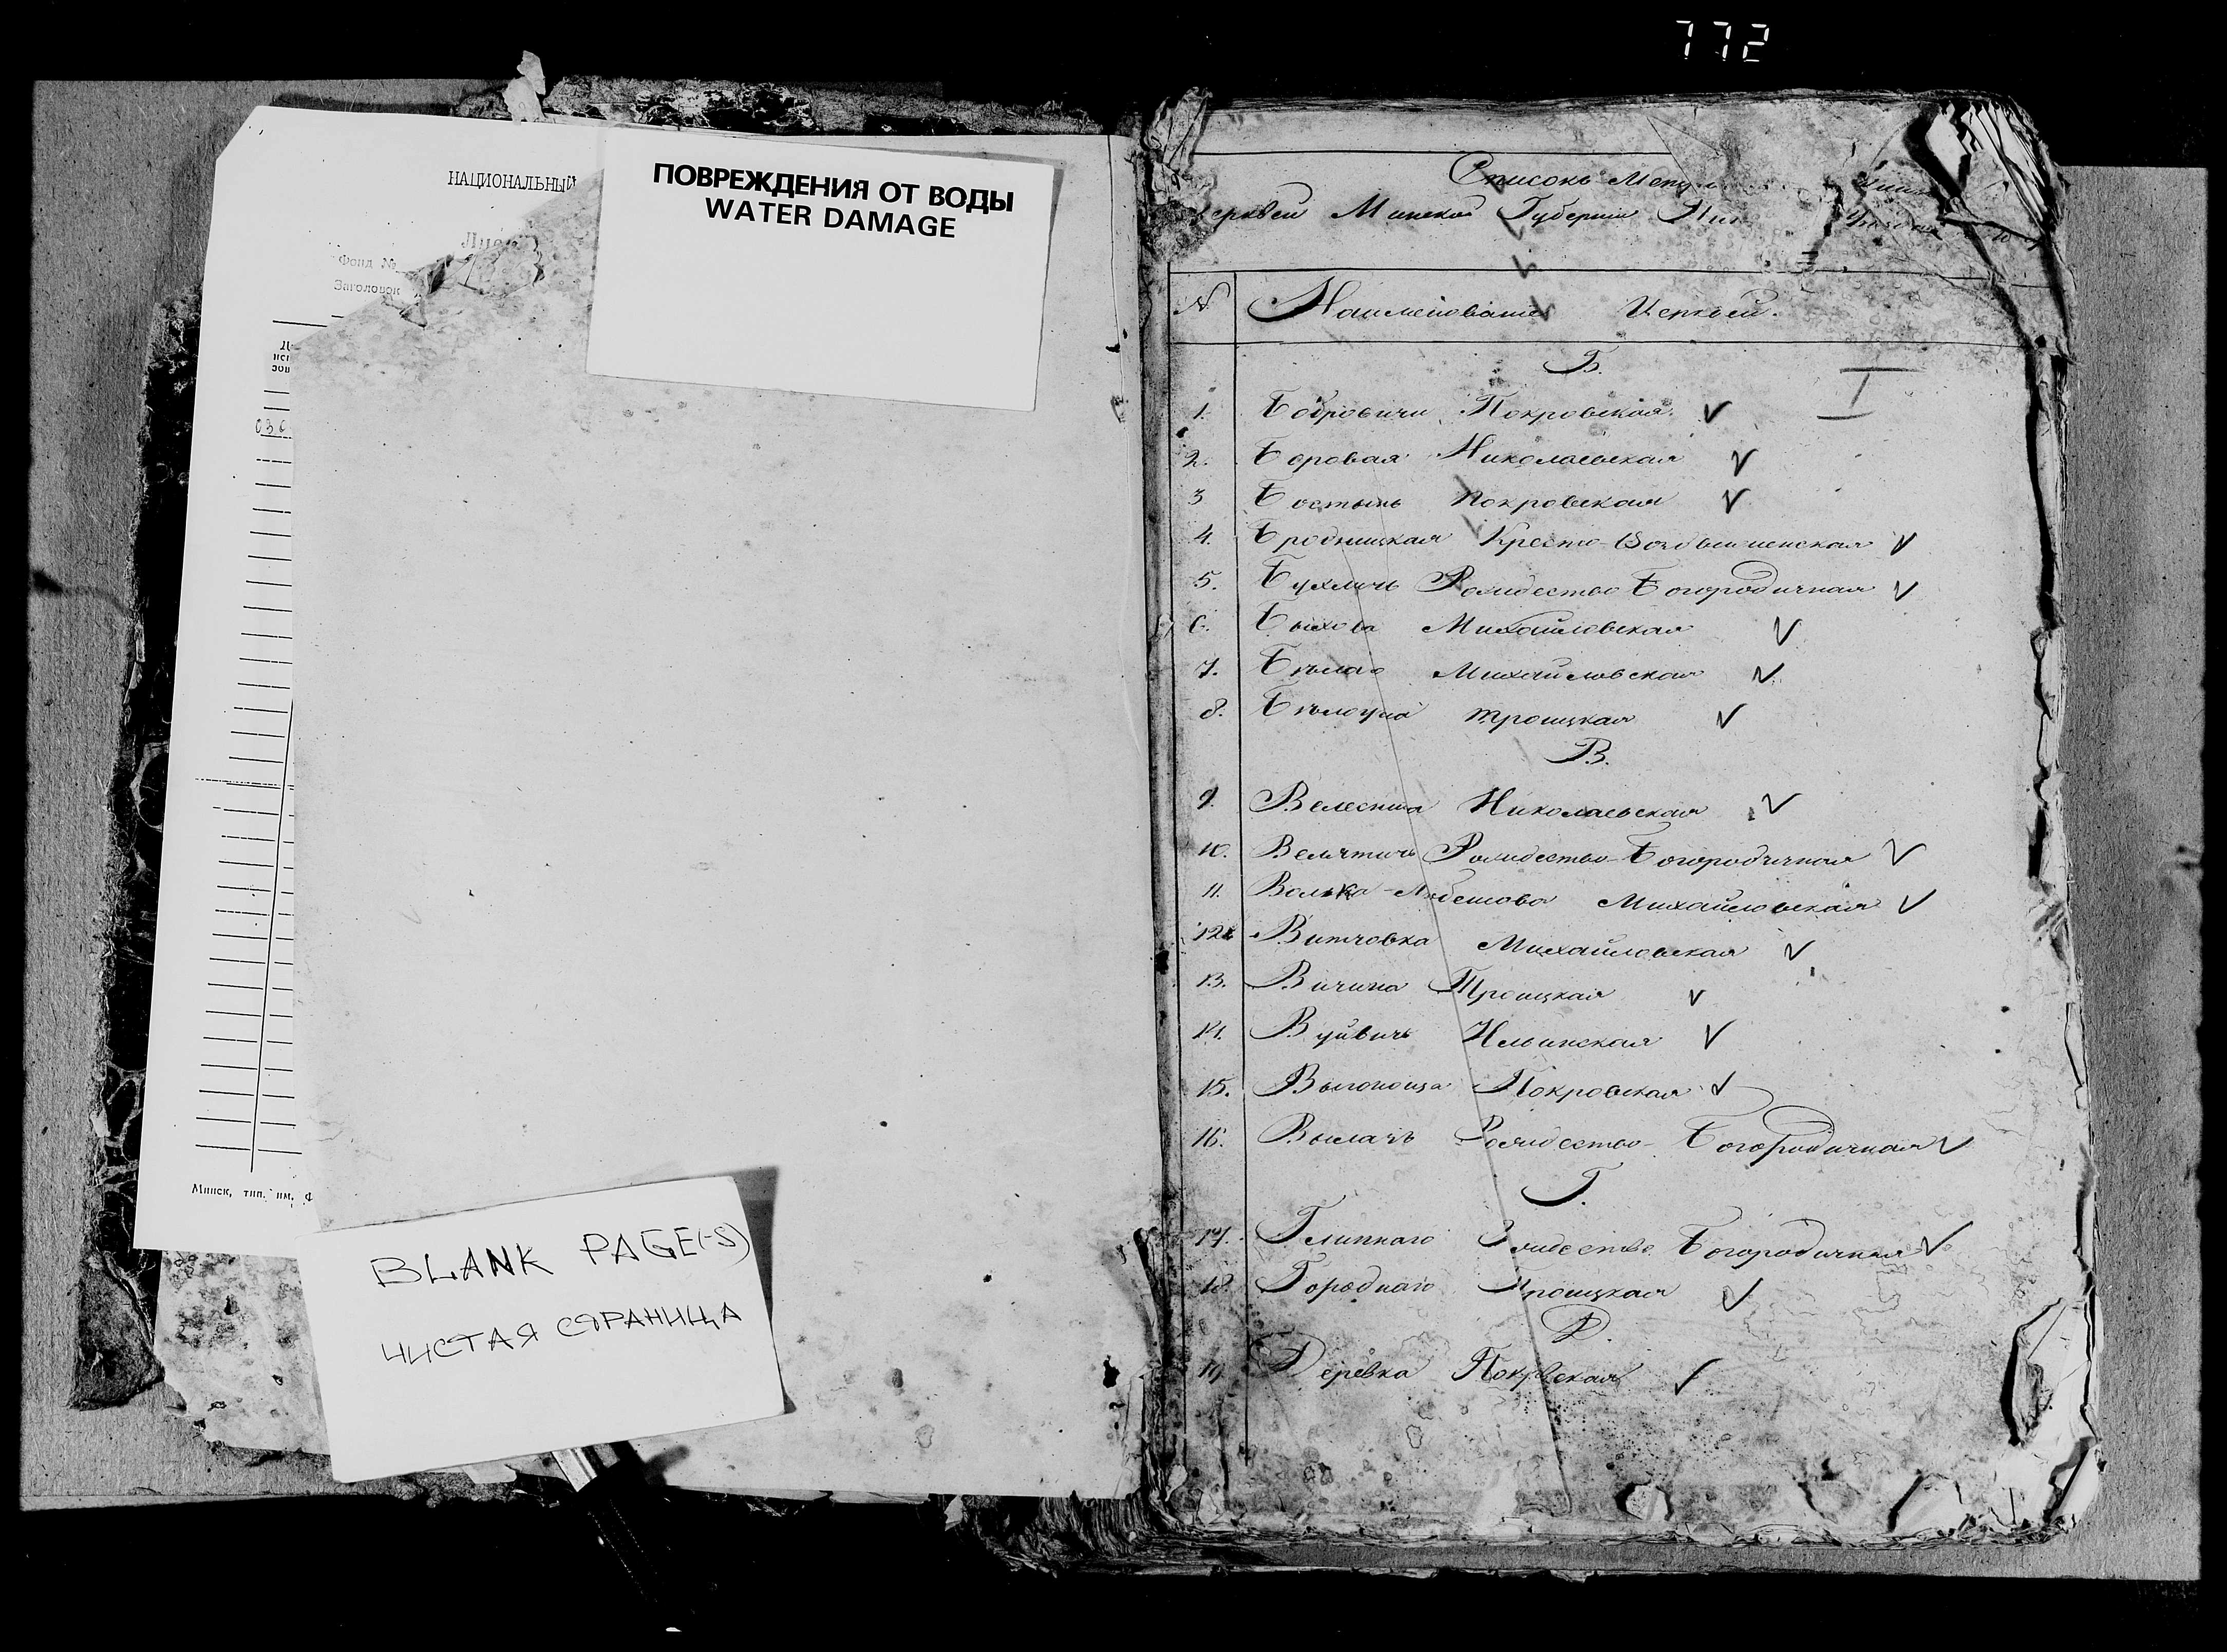 772
НАЦИОНАЛЬНЫЙ
Фонд №
Заголовок
ПОВРЕЖДЕНИЯ ОТ ВОДЫ
WATER DAMAGE
Минск, тип. им.
BLANK PAGE(-S)
ЧИСТАЯ СТРАНИЦА
Списокъ
Минской Губерніи
№ Наименованіе Церквей.
Б.
I
1. Бобровичи Покровская. ✓
2. Боровая Николаевская ✓
3 Бостынь Покровская ✓
4. Бродницкая Кресто-Воздвиженская ✓
5. Бухличь Рождество Богородичная ✓
6. Михайловская ✓
7. Бѣлая Михайловская ✓
8. Бѣлоуша Троицкая ✓
В.
9. Велесница Николаевская ✓
10. Велятичь Рождество-Богородичная ✓
11. Волька-Любешова Михайловская ✓
12. Витчовка Михайловская ✓
13. Вичина Троицкая ✓
14. Вуйвичь Ильинская ✓
15. Выгонощa Покровская ✓
16. Вылазь Рождество-Богородичная ✓
Г.
17. Глиннаго Рождество Богородичная ✓
18. Городнаго Троицкая ✓
Д.
19 Деревка Покровская ✓